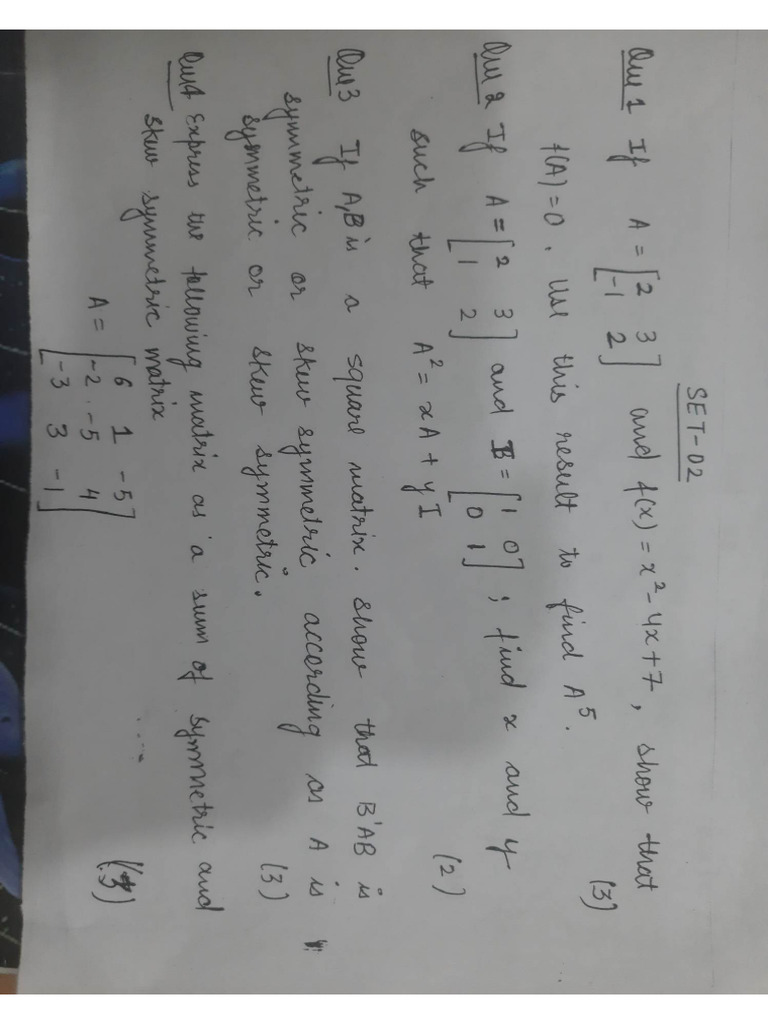 SET-02
Que 1 If A = [2 3 and f(x) = x² - 4x + 7, show that
-1 2]
f(A) = 0. Use this result to find A⁵. (3)
Que 2 If A = [2 3 and I = [1 0 ; find x and y
1 2] 0 1]
such that A² = xA + yI (2)
Que 3 If A,B is a square matrix. show that B'AB is
symmetric or skew symmetric according as A is
symmetric or skew symmetric. (3)
Que 4 Express the following matrix as a sum of symmetric and
skew symmetric matrix
A = [6 1 -5
-2 -5 4
-3 3 -1] (3)